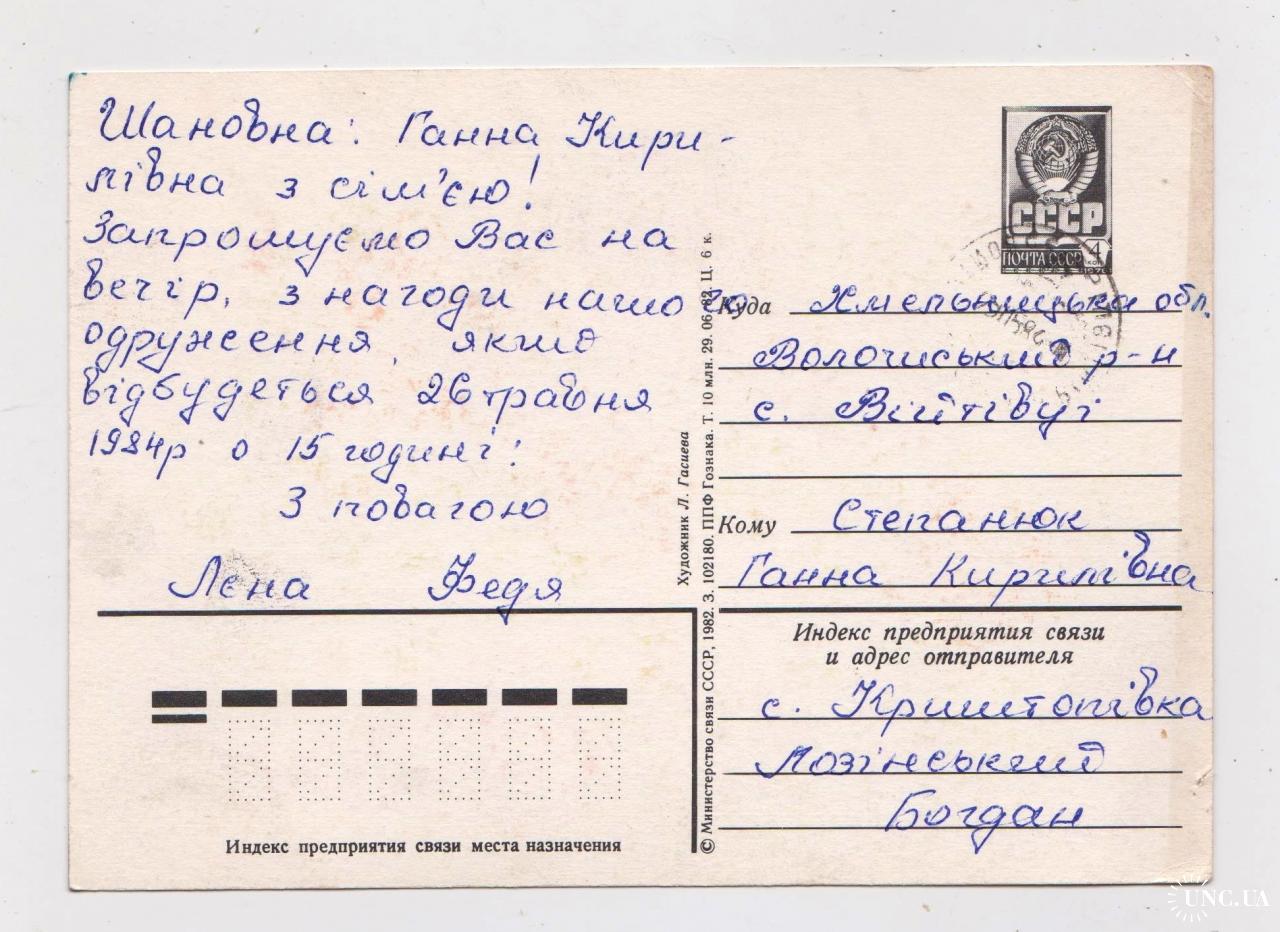 Шановна: Ганна Кири-
лівна з сім'єю!
Запрошуємо Вас на
вечір, з нагоди нашого
одруження, якиш
відбудеться 26 травня
1984р о 15 годині!
З повагою
Лєна Федя
СССР
ПОЧТА СССР 4 коп
Куда Хмельницька обл.
Волочиський р-н
с. Війтівці
Кому Степанюк
Ганна Кирилівна
Индекс предприятия связи
и адрес отправителя
с. Криштопівка
Лозінський
Богдан
Индекс предприятия связи места назначения
Художник Л. Гасиева
© Министерство связи СССР, 1982. З. 102180. ППФ Гознака. Т. 10 млн. 29. 06. 82. Ц. 6 к.
UNC.UA